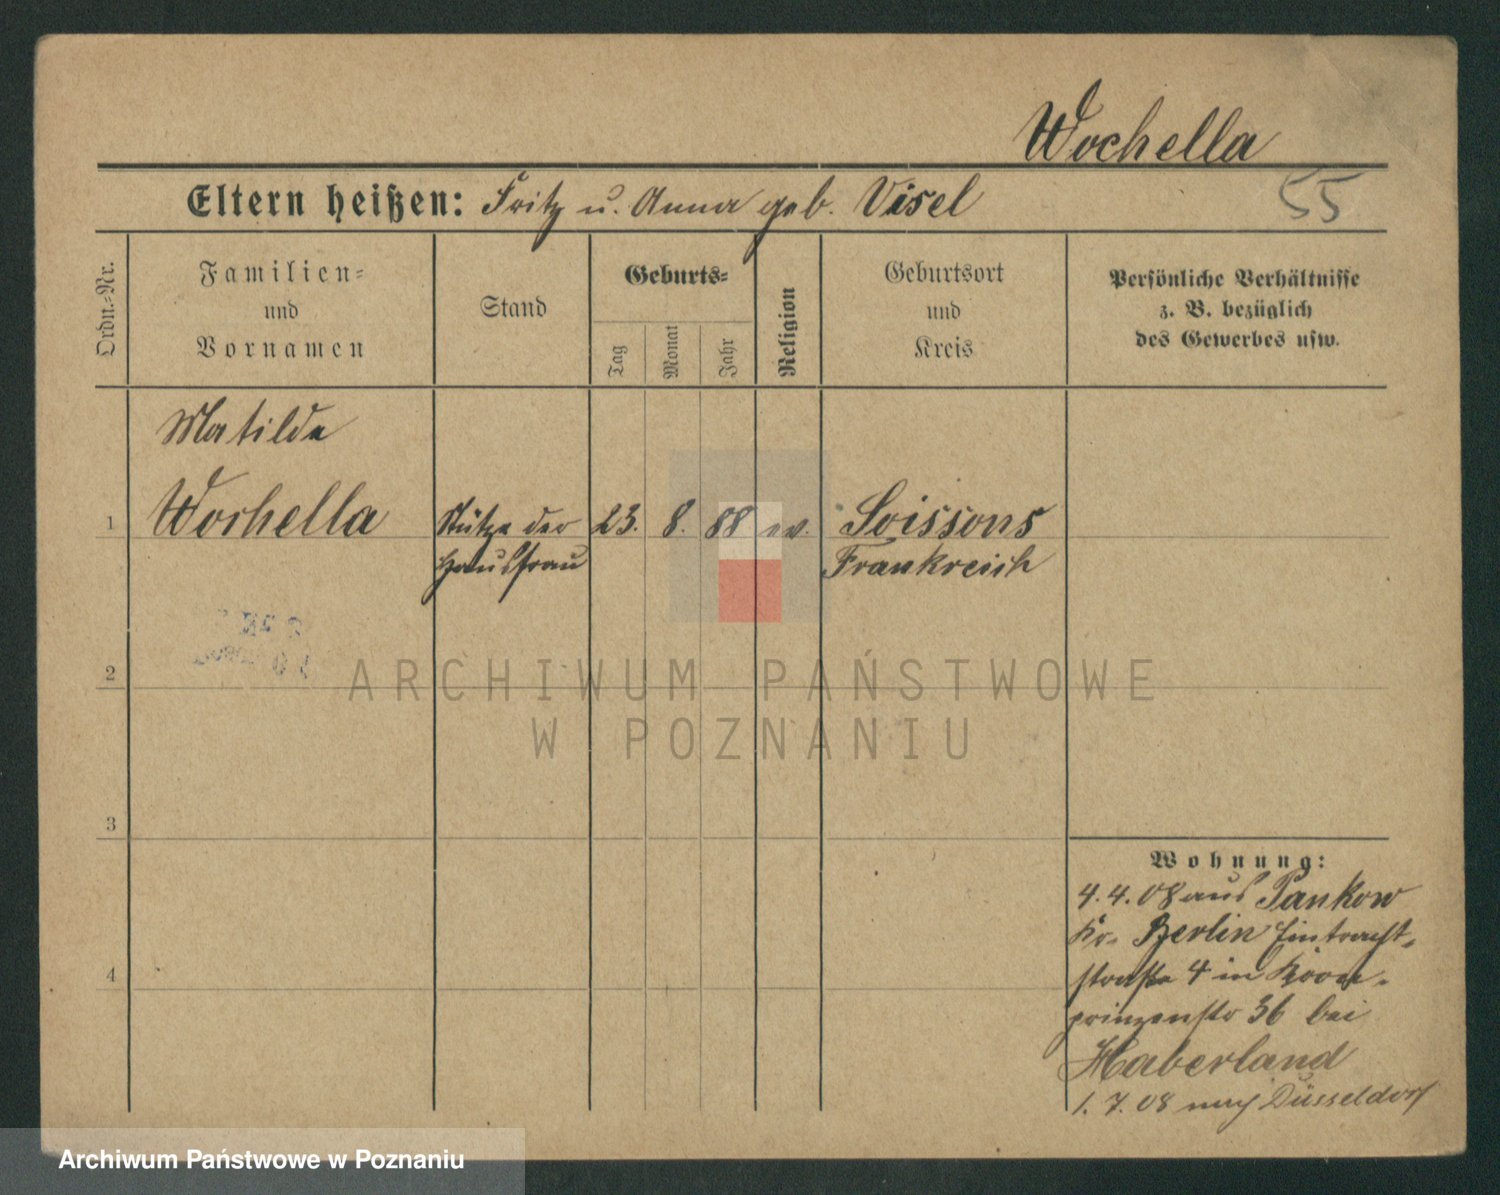 Wochella
Eltern heißen: Fritz u. Anna geb. Visel
55
Ordn.-Nr.
Familien-
und
Vornamen
Stand
Geburts-
Tag
Monat
Jahr
Religion
Geburtsort
und
Kreis
Persönliche Verhältnisse
z. B. bezüglich
des Gewerbes usw.
Matilde
1 Wochella Stütze der 23. 8. 88 ev. Soissons
Hausfrau Frankreich
2
3
4
Wohnung:
4.4.08 aus Pankow
Kr. Berlin Eintracht-
straße 4 in Kron-
prinzenstr 36 bei
Haberland
1.7.08 nach Düsseldorf
ARCHIWUM PAŃSTWOWE
W POZNANIU
Archiwum Państwowe w Poznaniu